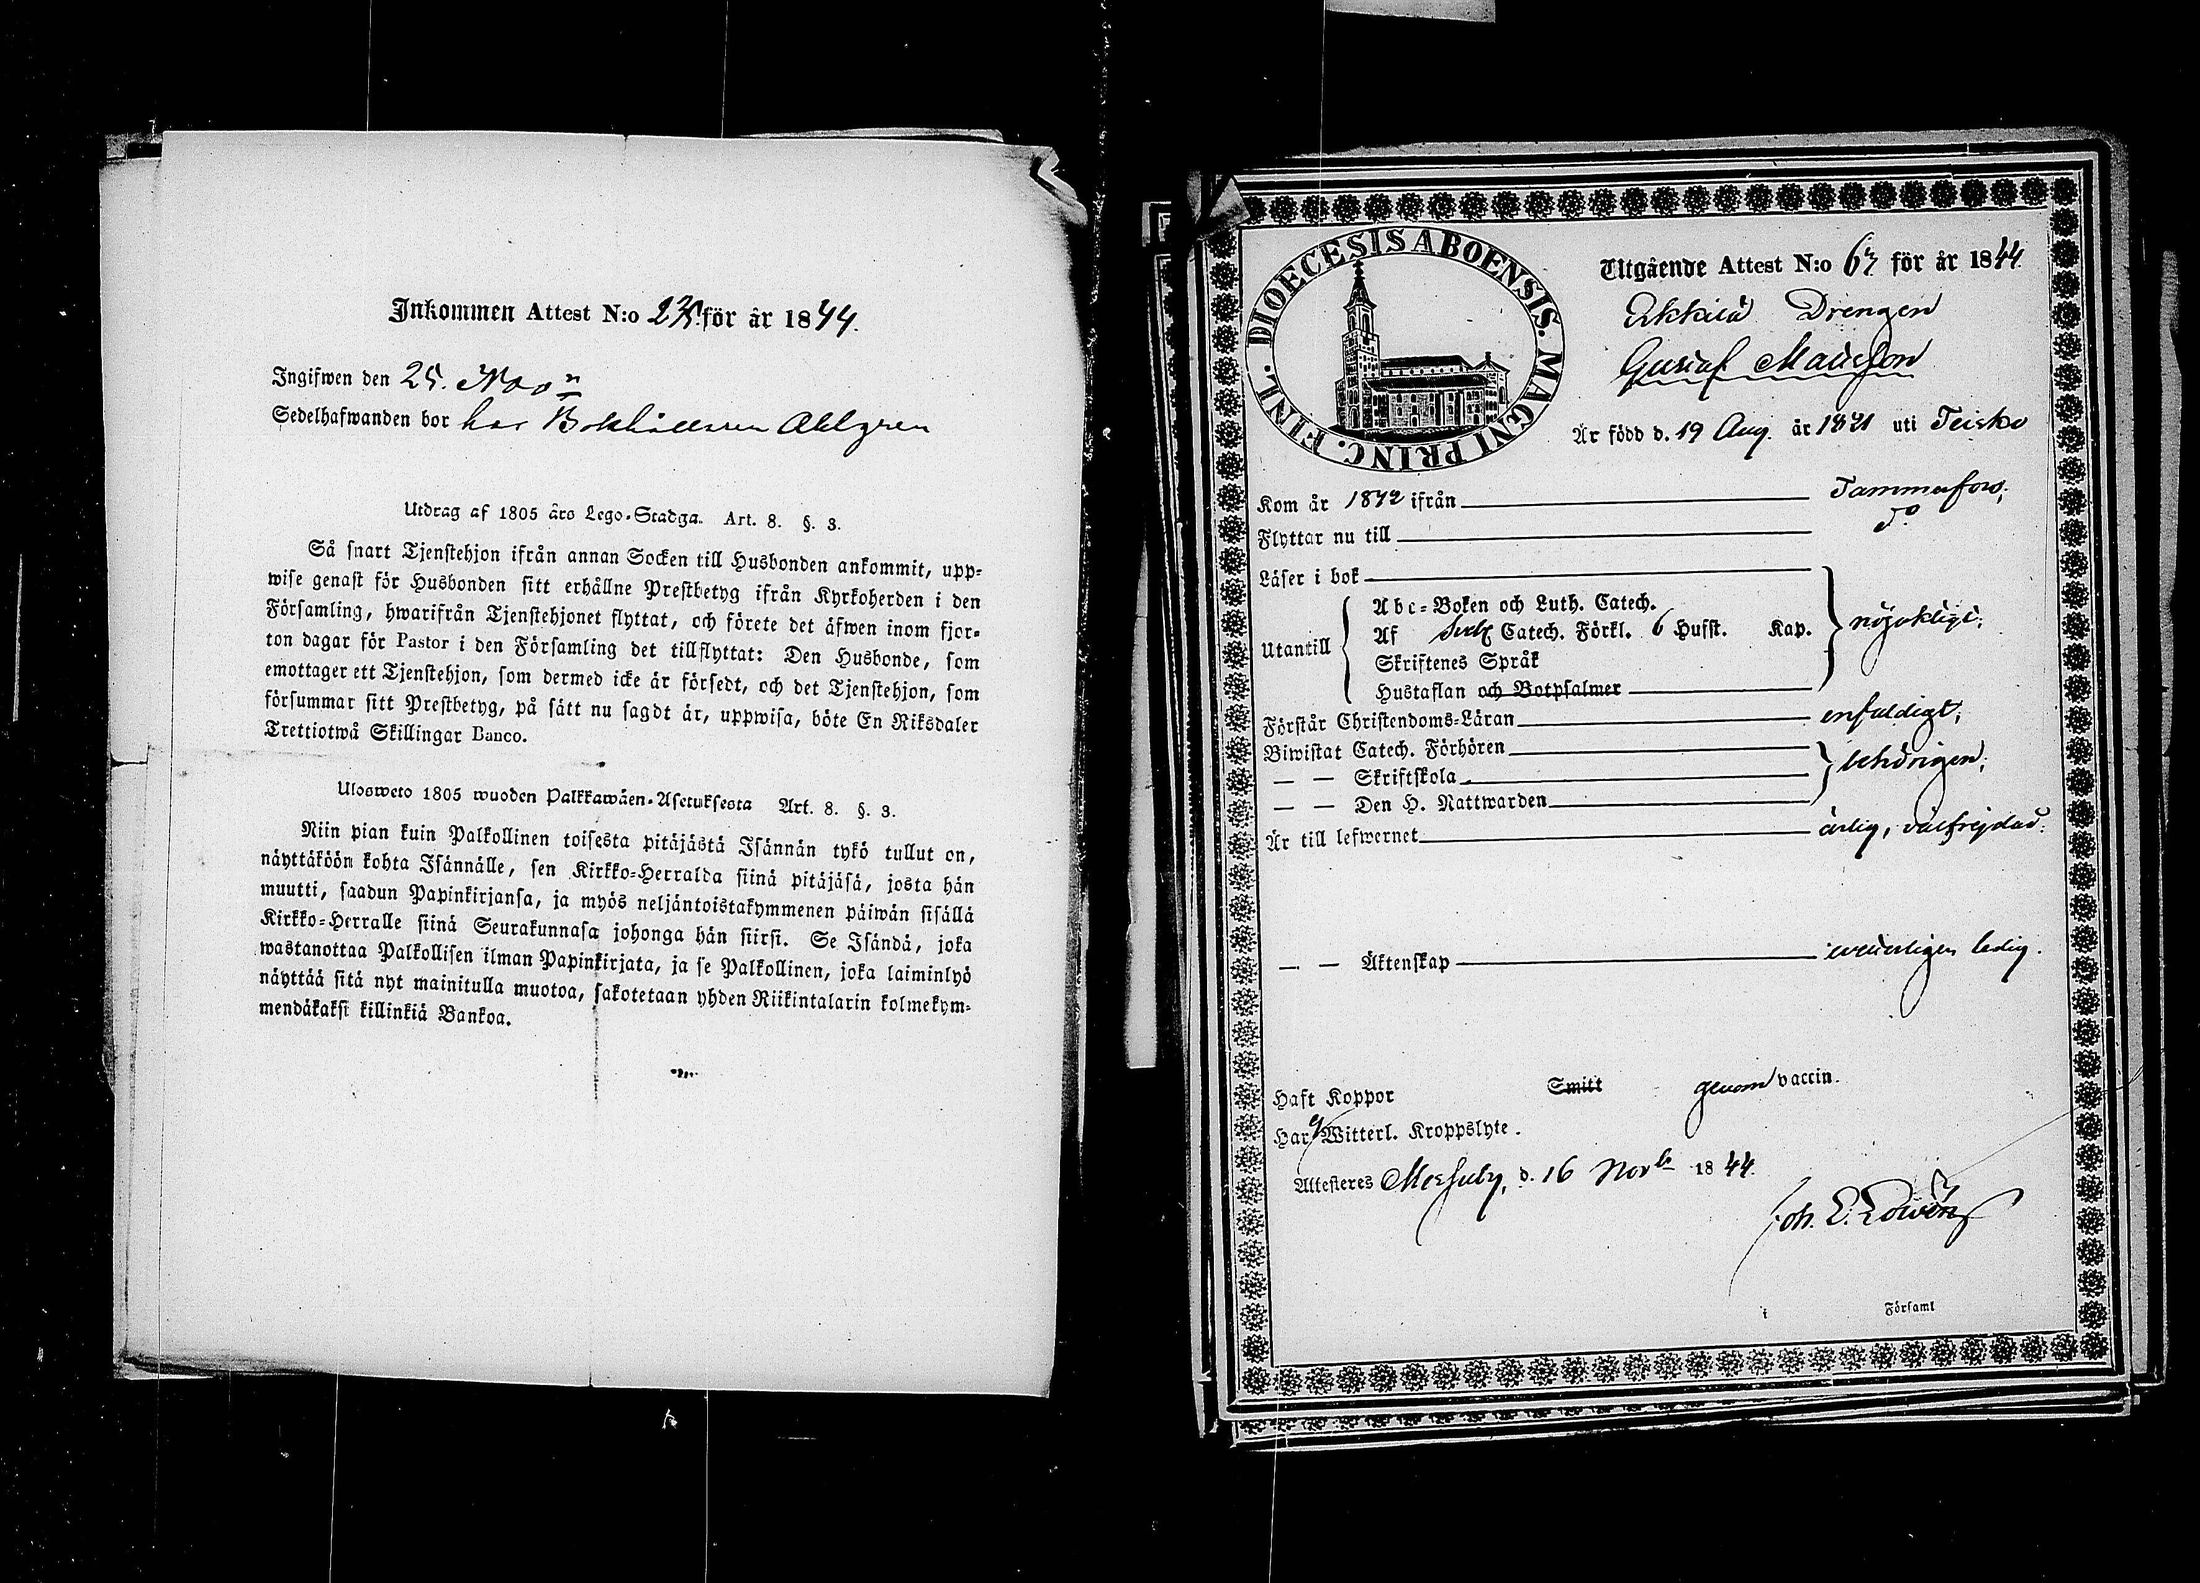 Inkommen Attest N:o för år 1844.
Ingifwen den 25. Nov
Sedelhafwanden bor hos Bokhålleren Ahlgren
Utdrag af 1805 års Lego-Stadga. Art. 8. §. 3.
Så snart Tjenstehjon ifrån annan Socken till Husbonden ankommit, upp-
wise genast för Husbonden sitt erhållne Prestbetyg ifrån Kyrkoherden i den
Församling, hwarifrån Tjenstehjonet flyttat, och förete det äfwen inom fjor-
ton dagar för Pastor i den Församling det tillflyttat: Den Husbonde, som
emottager ett Tjenstehjon, som dermed icke är försedt, och det Tjenstehjon, som
försummar sitt Prestbetyg, på sätt nu sagdt är, uppwisa, böte En Riksdaler
Trettiotwå Skillingar Banco.
Ulosweto 1805 wuoden Palkkawäen-Asetuksesta Art. 8. §. 3.
Niin pian kuin Palkollinen toisesta pitäjästä Isännän tykö tullut on,
näyttäköön kohta Isännälle, sen Kirkko-Herralda siinä pitäjäsä, josta hän
muutti, saadun Papinkirjansa, ja myös neljäntoistakymmenen päiwän sisällä
Kirkko-Herralle siinä Seurakunnasa johonga hän siirsi. Se Isändä, joka
wastanottaa Palkollisen ilman Papinkirjata, ja se Palkollinen, joka laiminlyö
näyttää sitä nyt mainitulla muotoa, sakotetaan yhden Riikintalarin kolmekym-
mendäkaksi killinkiä Bankoa.
DIOECESIS ABOENSIS. MAGNI PRINC. FINL.
Utgående Attest N:o 67 för år 1844.
Drengen
Gustaf
Är född d. 19 Aug. år 1821 uti Teisko
Kom år 1842 ifrån Tammerfors;
Flyttar nu till d:o
Läser i bok
Utantill
Abc-Boken och Luth. Catech.
Af Sveb Catech. Förkl. 6 Hufst. Kap.
Skriftenes Språk
Hustaflan och Botpsalmer
nöjaktigt;
Förstår Christendoms-Läran enfaldigt;
Biwistat Catech. Förhören
— — Skriftskola
— — Den H. Nattwarden
behörigen;
Är till lefwernet ärlig, välfrejdad:
— — Äktenskap ledig.
Haft Koppor Smitt genom vaccin.
Har ej Witterl. Kroppslyte.
Attesteres Messuby, d. 16 Novb 1844.
Joh. E.
i Församl